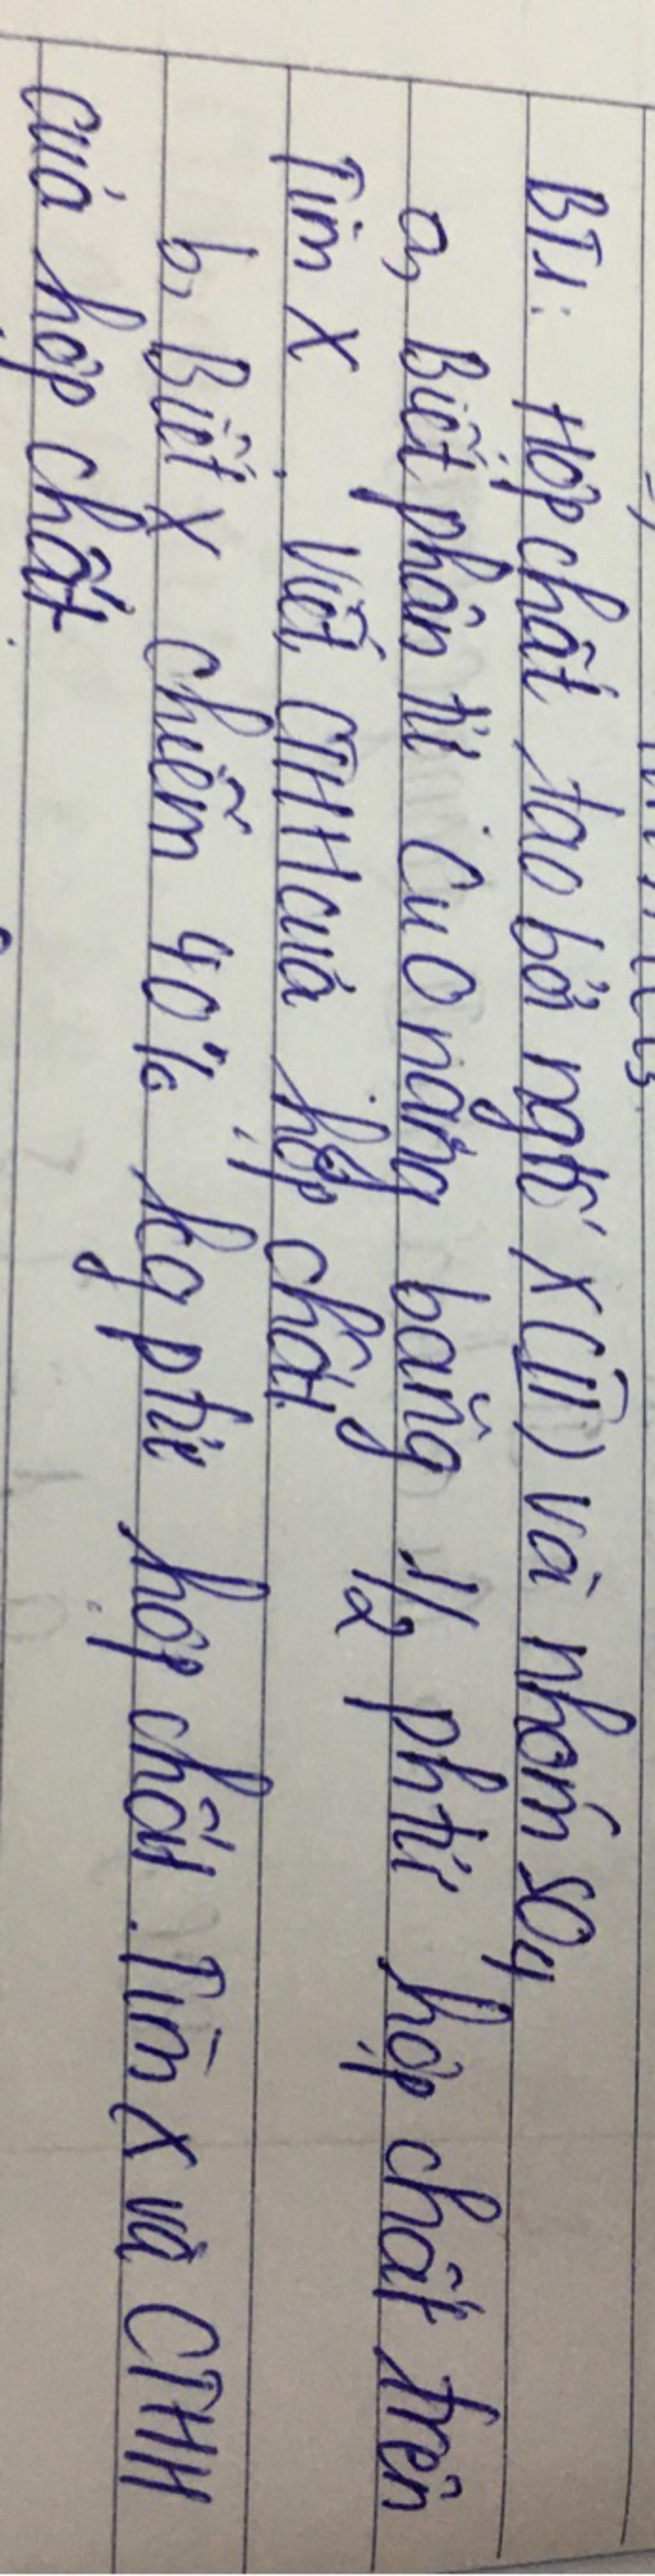 BT1: Hợp chất tạo bởi ngtố X (II) và nhóm SO4
a, Biết phân tử CuO nặng bằng 1/2 phtử hợp chất trên
Tìm X. Viết CTHH của hợp chất
b, Biết X chiếm 40% kg phtử hợp chất. Tìm X và CTHH
của hợp chất